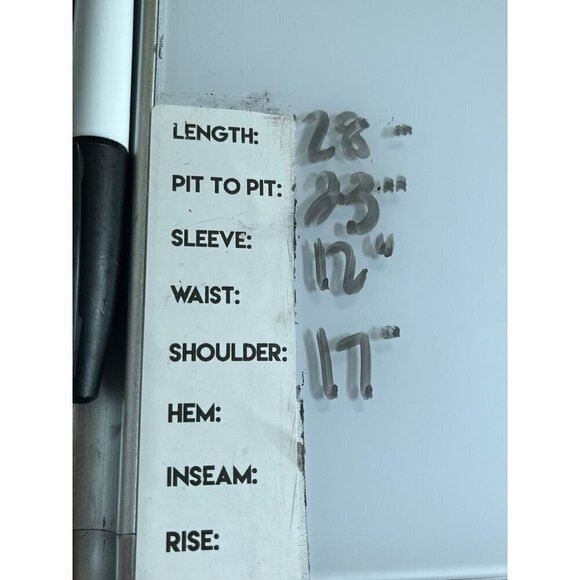 LENGTH: 28"
PIT TO PIT: 23"
SLEEVE: 12"
WAIST:
SHOULDER: 17"
HEM:
INSEAM:
RISE: